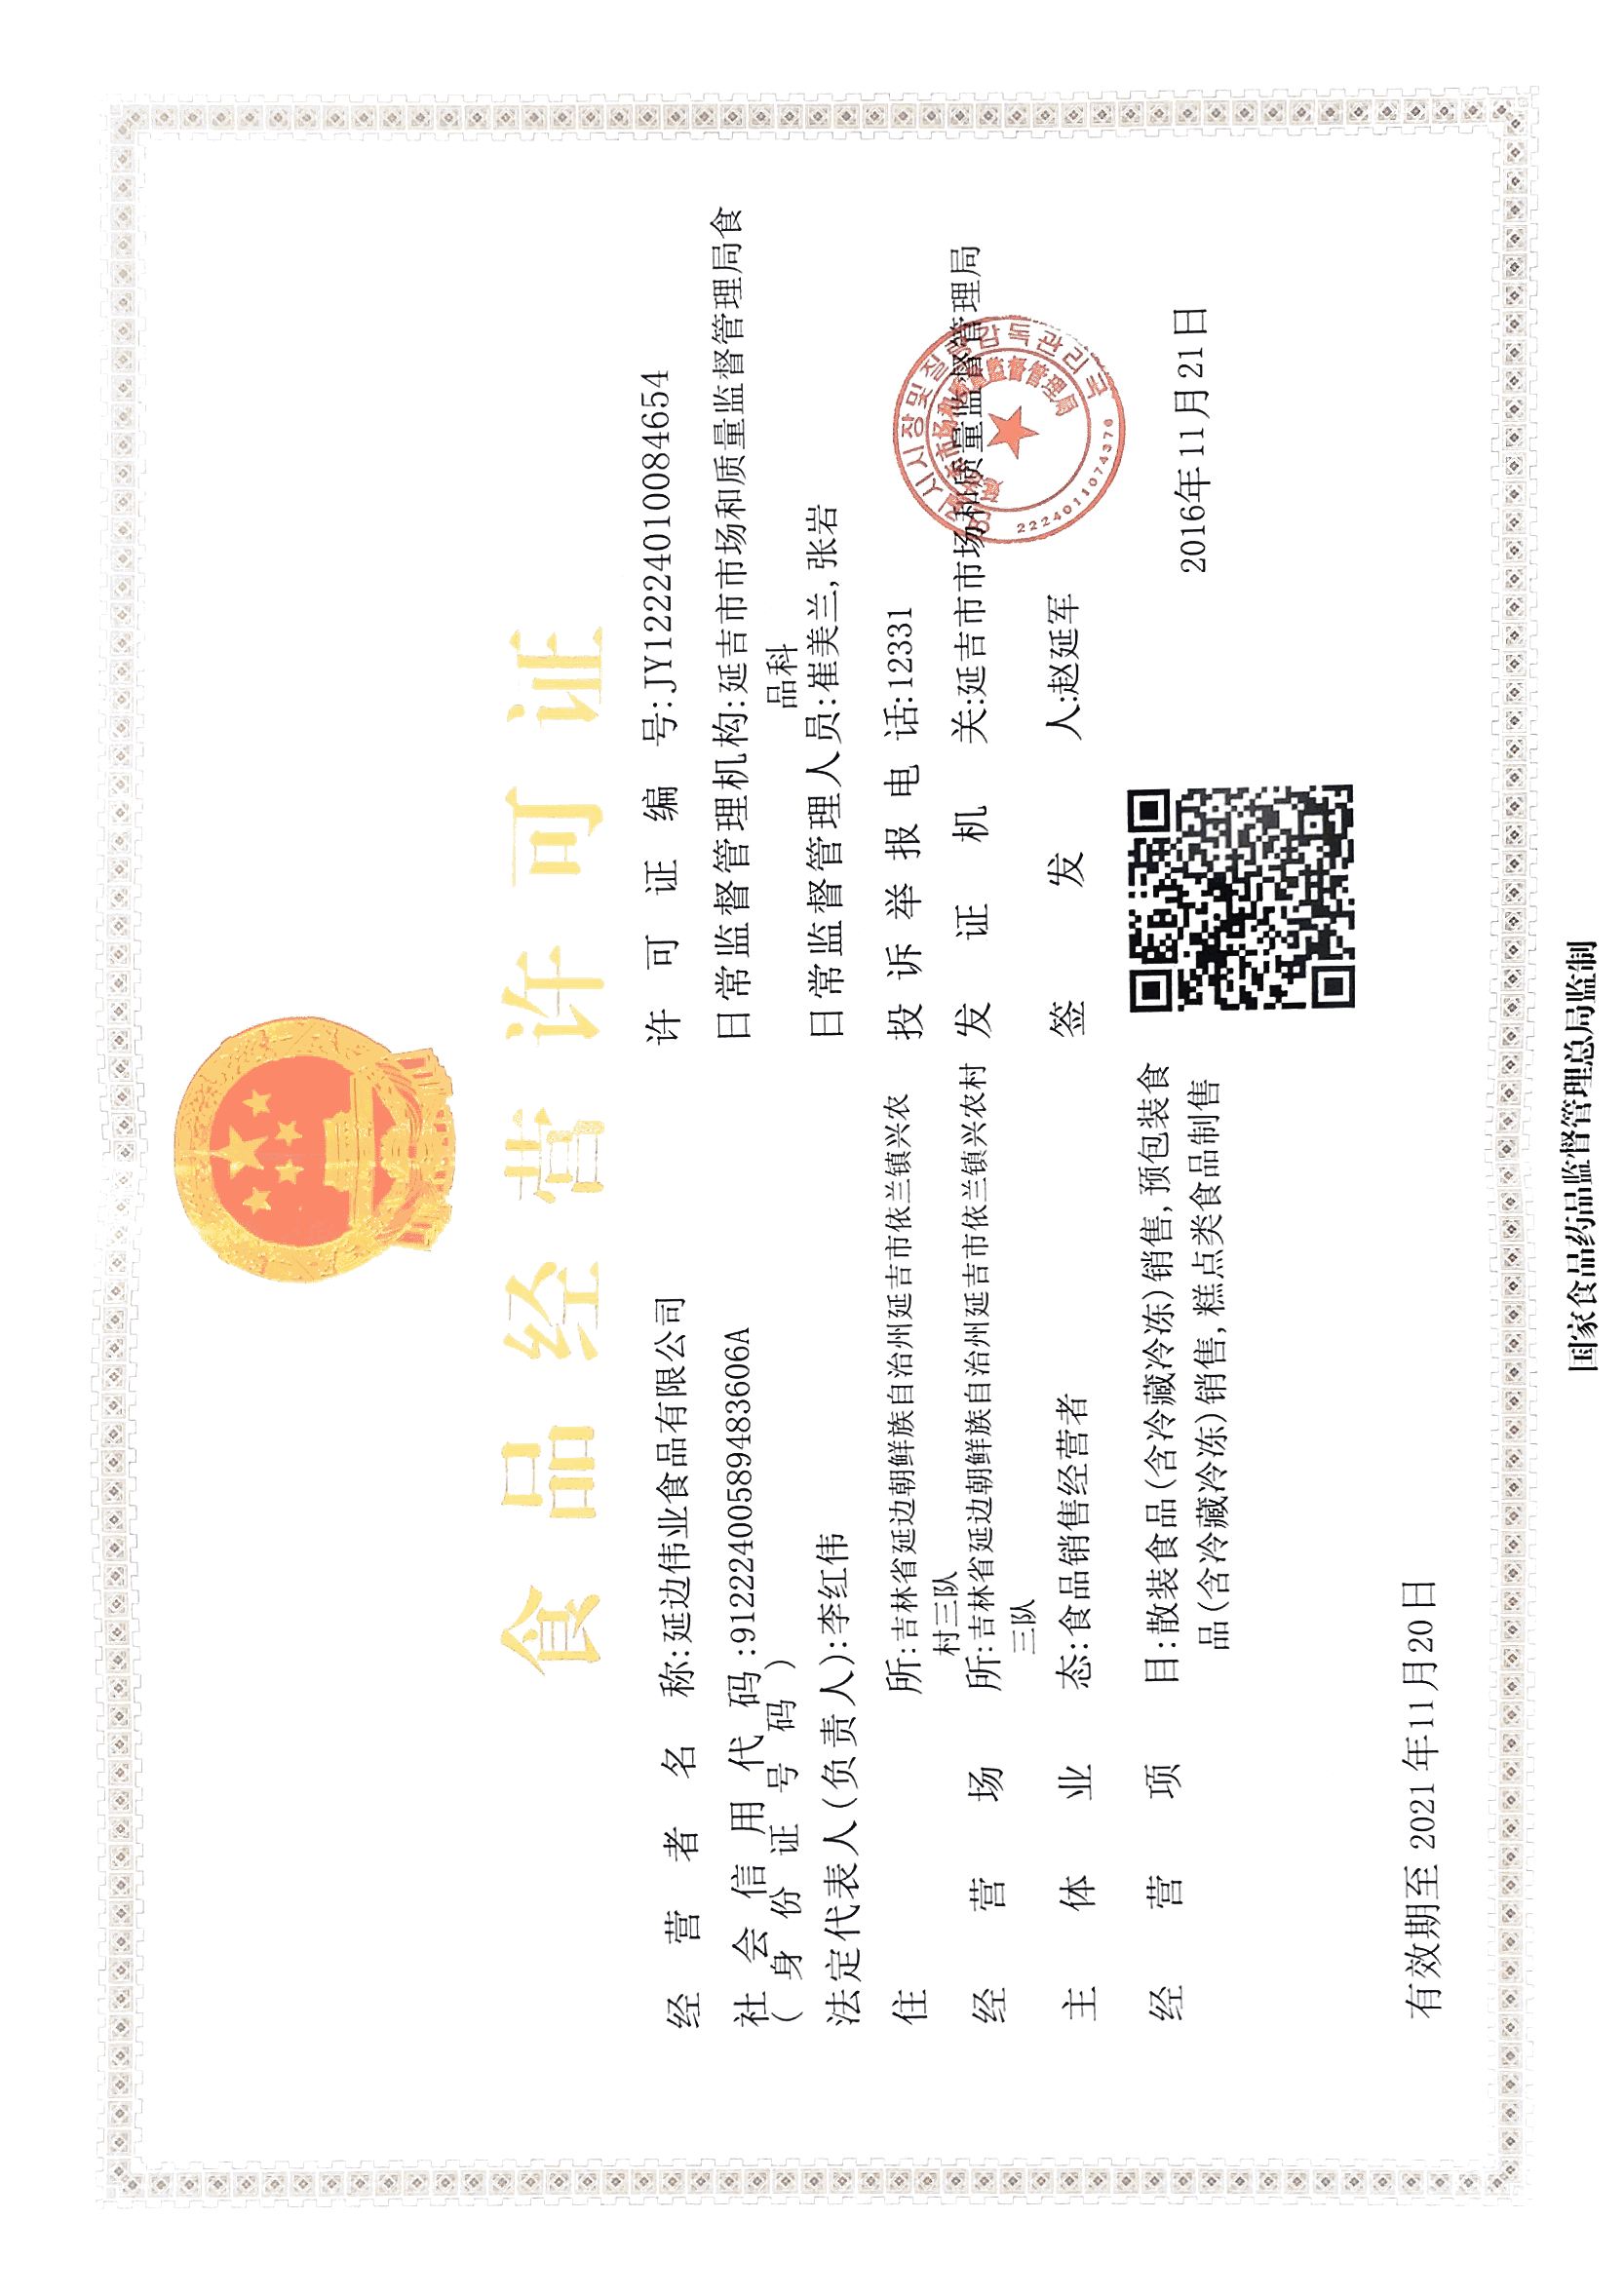 食品经营许可证
经营者名称:延边伟业食品有限公司
社会信用代码:91222400589483606A
(身份证号码)
法定代表人(负责人):李红伟
住所:吉林省延边朝鲜族自治州延吉市依兰镇兴农
村三队
经营场所:吉林省延边朝鲜族自治州延吉市依兰镇兴农村
三队
主体业态:食品销售经营者
经营项目:散装食品(含冷藏冷冻)销售,预包装食
品(含冷藏冷冻)销售,糕点类食品制售
有效期至 2021年11月20日
许可证编号:JY12224010084654
日常监督管理机构:延吉市市场和质量监督管理局食
品科
日常监督管理人员:崔美兰,张岩
投诉举报电话:12331
发证机关:延吉市市场和质量监督管理局
签发人:赵延军
2016年11月21日
2224011074376
国家食品药品监督管理总局监制